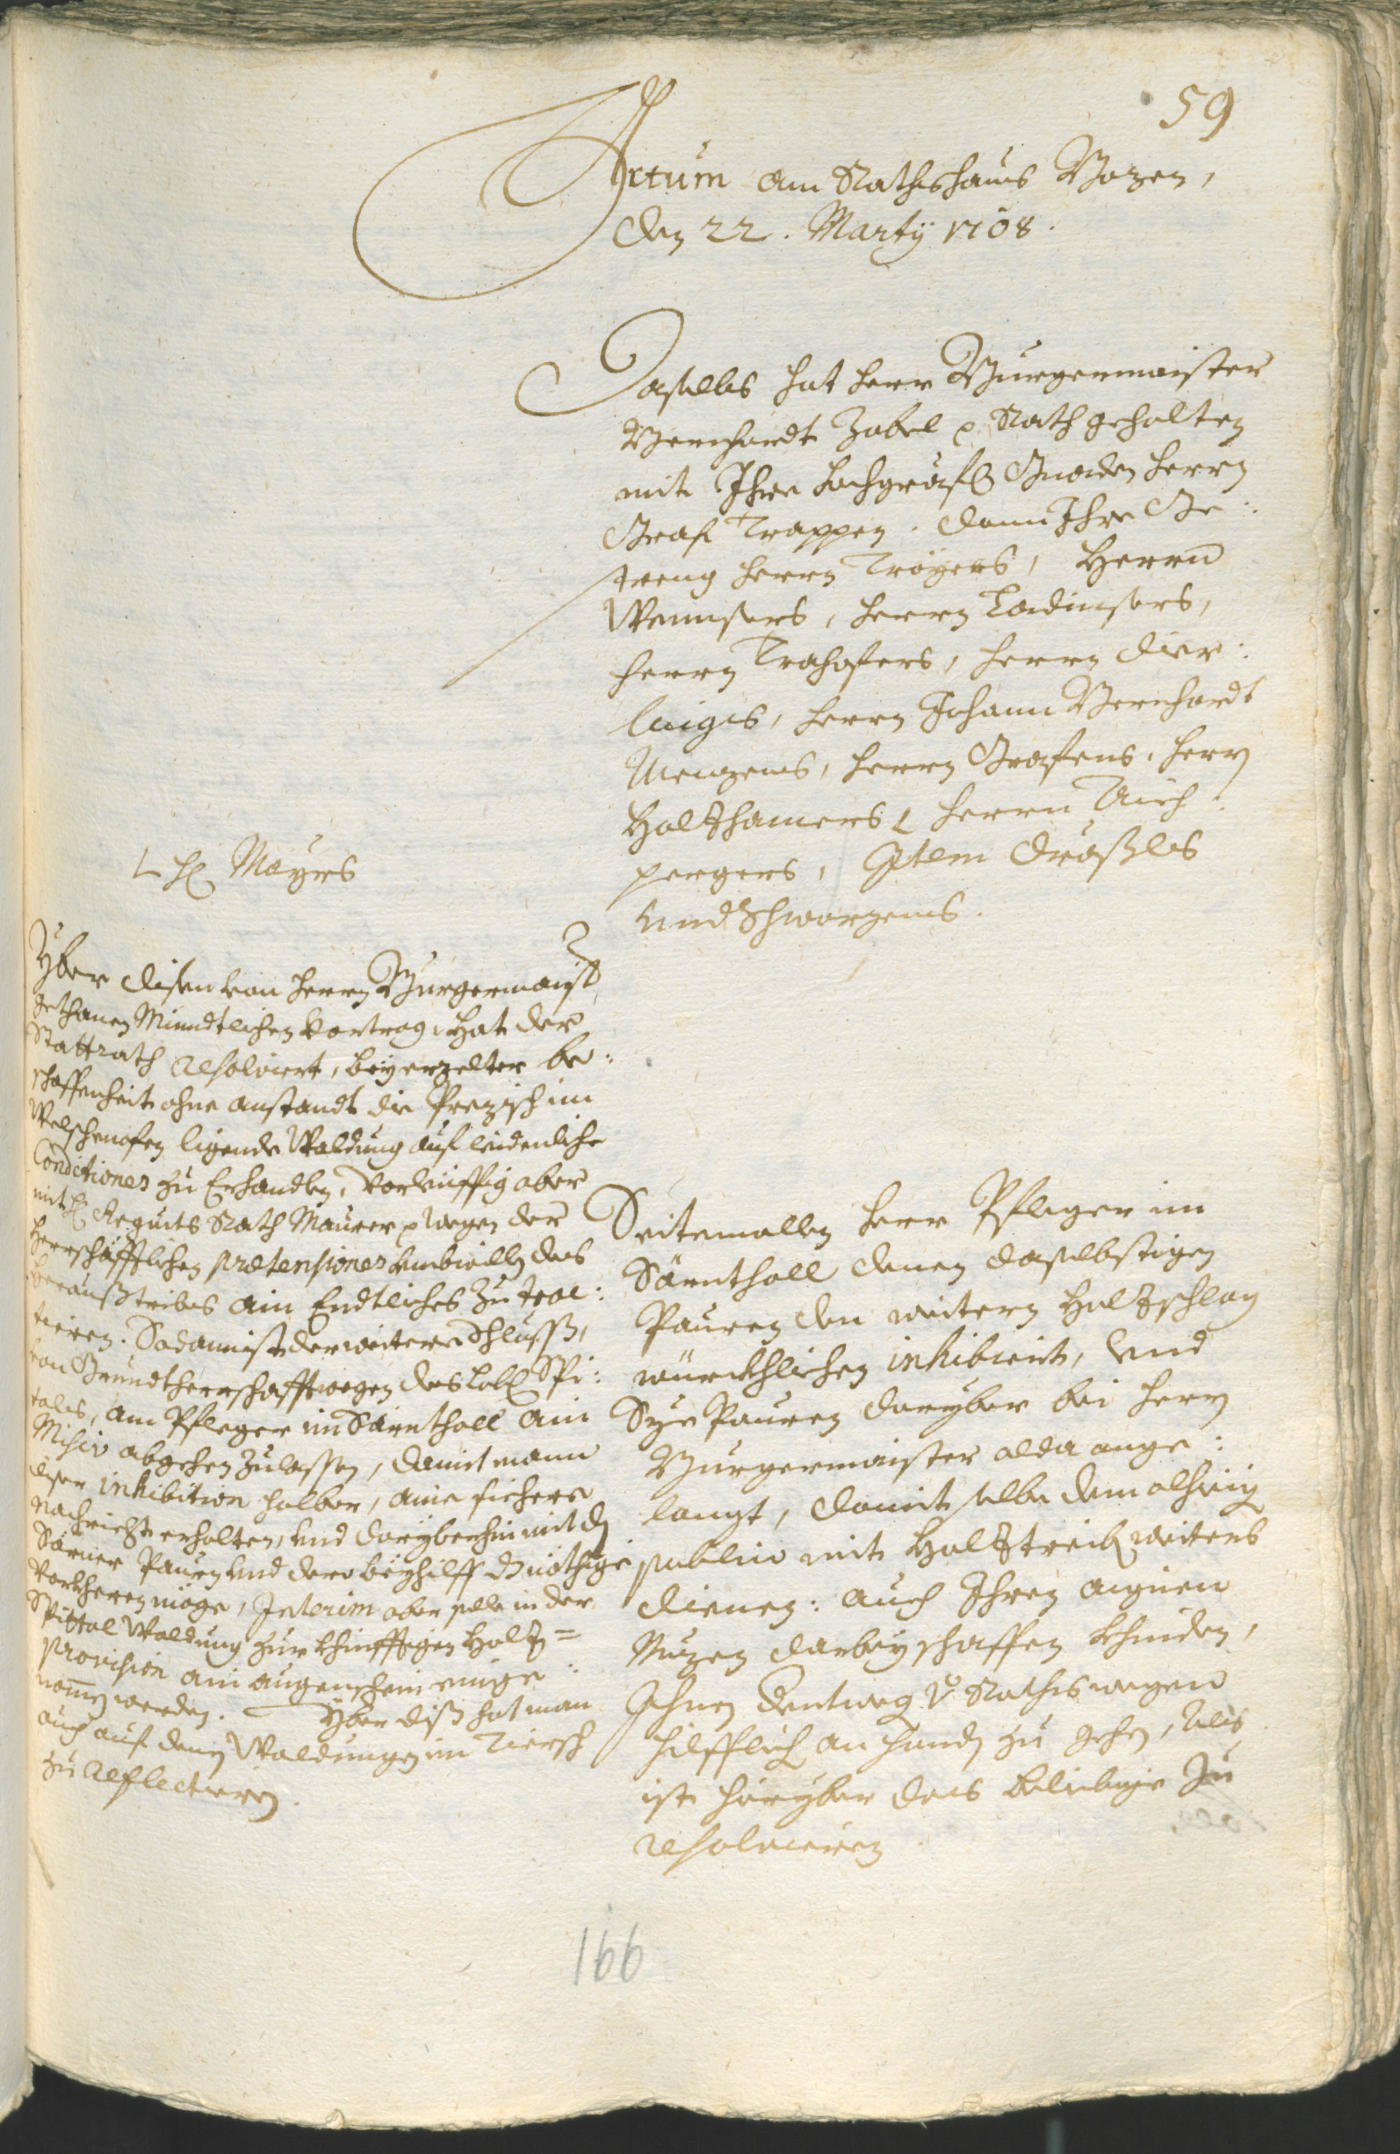 59
Actum am Rathshaus Bozen,
den 22. Marty 1708.
Daselbs hat herr Burgermaister
Bernhardt Zobel p Rath gehalten
mit Ihro hochgräfl Gnaden herrn
Graf Trappen. dann Ihro Ge:
streng herrn Troyers, Herrn
Wennsers, herrn Ladinsers,
herrn Trahofers, herrn dier:
luigis, herrn Johann Bernhardt
Menzens, herrn Grafens, herrn
Holzhamers L herrn Auch:
pergers, Item Dräxls
vnd Schwarzens.
L h Mayrs
Yber disen von herrn Burgermaist
gethanen Mindtlichen Vortrag, Hat der
Stattrath resolviert, bey erzelter be:
schaffenheit ohne anstandt die Prezisch im
Welschenofen ligende Waldung auf leidenliche
Conditiones zu Erhandlen, vorleiffig aber
mit h Reguits Rath Maurer p wegen der
herrschäfftlichen prætensiones umbwillen des
herauß tribes ain Endtliches zu trac:
tieren. Sodann ist der weitere Schluß,
von Grundtherrschafft wegen des Lobl Spi:
tals, am Pfleger im Särnthall ain
Misiv abgehen zulassen, damit mann
diser inhibition halber, aine sichere
nachricht erhalten, und daryberhin mit den
Sarner Paurn und dero beyhilff dz nöthige
vorkheren möge, Interim aber solle in der
Spittal Waldung zur khinfftigen Holz=
provision ain augenschein einge:
nomen werden. Yber diß hat man
auch auf denen Waldungen im Tiersch
zu reflectieren.
Seitemallen herr Pfleger im
Särnthall denen daselbstigen
Pauren den weitern Holzschlag
würckhlichen inhibiert, vnd
Sye Pauren daryber bei herrn
Burgermaister alda ange:
langt, damit selbe dem alhieig
publico mit Holztrib weiters
dienen: auch Ihren aignen
Nuzen darbey schaffen khinden,
Ihnen dentweg v Raths wegen
hilfflich an handt zu gehen, Als
ist hieryber das beliebige zu
resolvieren
166